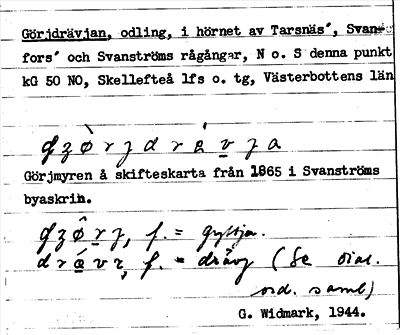 Görjdrävjan, odling, i hörnet av Tarsnäs', Svan-
fors' och Svanströms rågångar, N o. S denna punkt
kG 50 NO, Skellefteå lfs o. tg, Västerbottens län
Görjmyren å skifteskarta från 1865 i Svanströms
byaskrin.
f. =
f. = (Se dial.
ord. saml)
G. Widmark, 1944.